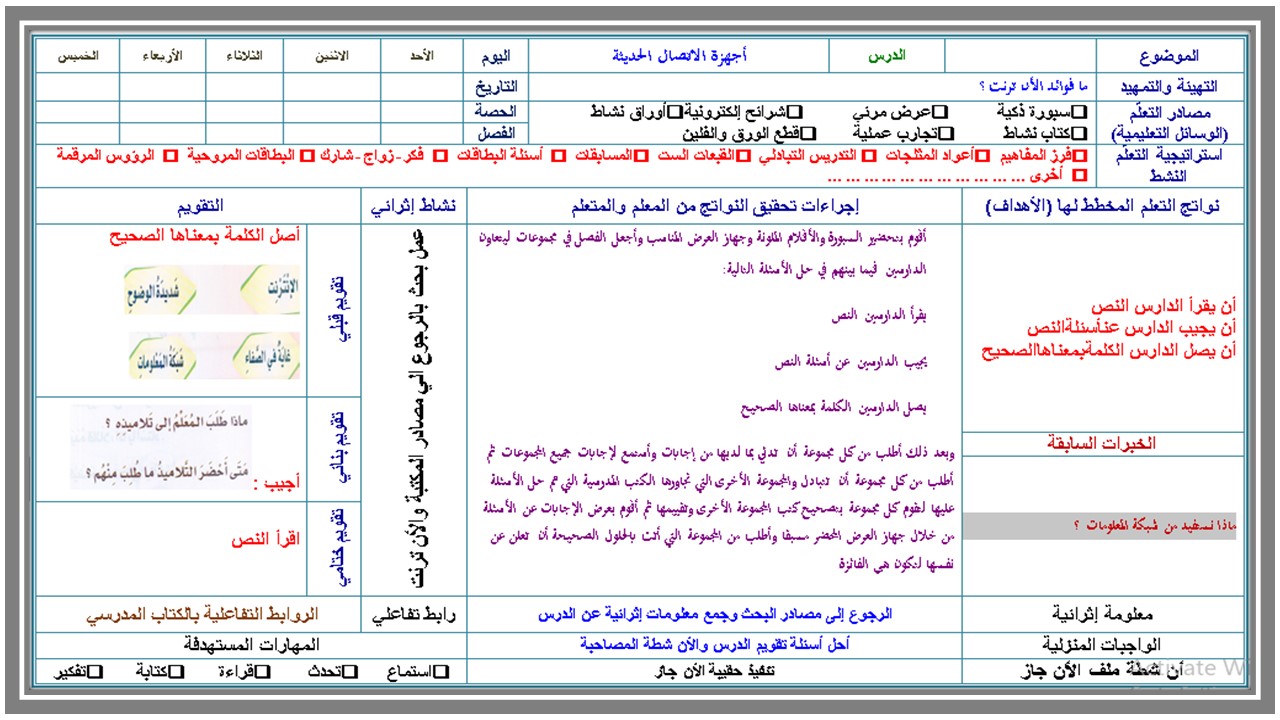 الموضوع الدرس أجهزة الاتصال الحديثة اليوم الأحد الاثنين الثلاثاء الأربعاء الخميس
التهيئة والتمهيد ما فوائد الأن ترنت ؟ التاريخ
مصادر التعلّم سبورة ذكية عرض مرئي شرائح إلكترونية أوراق نشاط الحصة
(الوسائل التعليمية) كتاب نشاط تجارب عملية قطع الورق والفلين الفصل
استراتيجية التعلّم فرز المفاهيم أعواد المثلجات التدريس التبادلي القبعات الست المسابقات أسئلة البطاقات فكر-زواج-شارك البطاقات المروحية الرؤوس المرقمة
النشط أخرى ... ... ... ... ... ... ... ... ... ... ...
نواتج التعلم المخطط لها (الأهداف) إجراءات تحقيق النواتج من المعلم والمتعلم نشاط إثرائي التقويم
أن يقرأ الدارس النص
أن يجيب الدارس عنأسئلةالنص
أن يصل الدارس الكلمةبمعناهاالصحيح
الخبرات السابقة
ماذا نستفيد من شبكة المعلومات ؟
أقوم بتحضير السبورة والأقلام الملونة وجهاز العرض المناسب وأجعل الفصل في مجموعات ليتعاون
الدارسين فيما بينهم في حل الأسئلة التالية:
يقرأ الدارسين النص
يجيب الدارسين عن أسئلة النص
يصل الدارسين الكلمة بمعناها الصحيح
وبعد ذلك أطلب من كل مجموعة أن تدلي بما لديها من إجابات وأستمع لإجابات جميع المجموعات ثم
أطلب من كل مجموعة أن تتبادل والمجموعة الأخرى التي تجاورها الكتب المدرسية التي تم حل الأسئلة
عليها لتقوم كل مجموعة بتصحيح كتب المجموعة الأخرى وتقييمها ثم أقوم بعرض الإجابات عن الأسئلة
من خلال جهاز العرض المحضر مسبقا وأطلب من المجموعة التي أتت بالحلول الصحيحة أن تعلن عن
نفسها لتكون هي الفائزة
عمل بحث بالرجوع الي مصادر المكتبة والأن ترنت
تقويم قبلي
أصل الكلمة بمعناها الصحيح
الإنْتَرْنِت شَديدَةُ الوضوحِ
غايَةٌ في الصَّفاءِ شَبَكَةُ المَعْلوماتِ
تقويم بنائي
ماذا طَلَبَ المُعَلِّمُ إلى تَلاميذِهِ ؟
مَتَى أَحْضَرَ التَّلاميذُ ما طُلِبَ مِنْهُم ؟
أجيب :
تقويم ختامي
اقرأ النص
معلومة إثرائية الرجوع إلى مصادر البحث وجمع معلومات إثرائية عن الدرس رابط تفاعلي الروابط التفاعلية بالكتاب المدرسي
الواجبات المنزلية أحل أسئلة تقويم الدرس والأن شطة المصاحبة المهارات المستهدفة
أن شطة ملف الأن جاز تنفيذ حقيبة الأن جاز استماع تحدث قراءة كتابة تفكير
Activate Wi